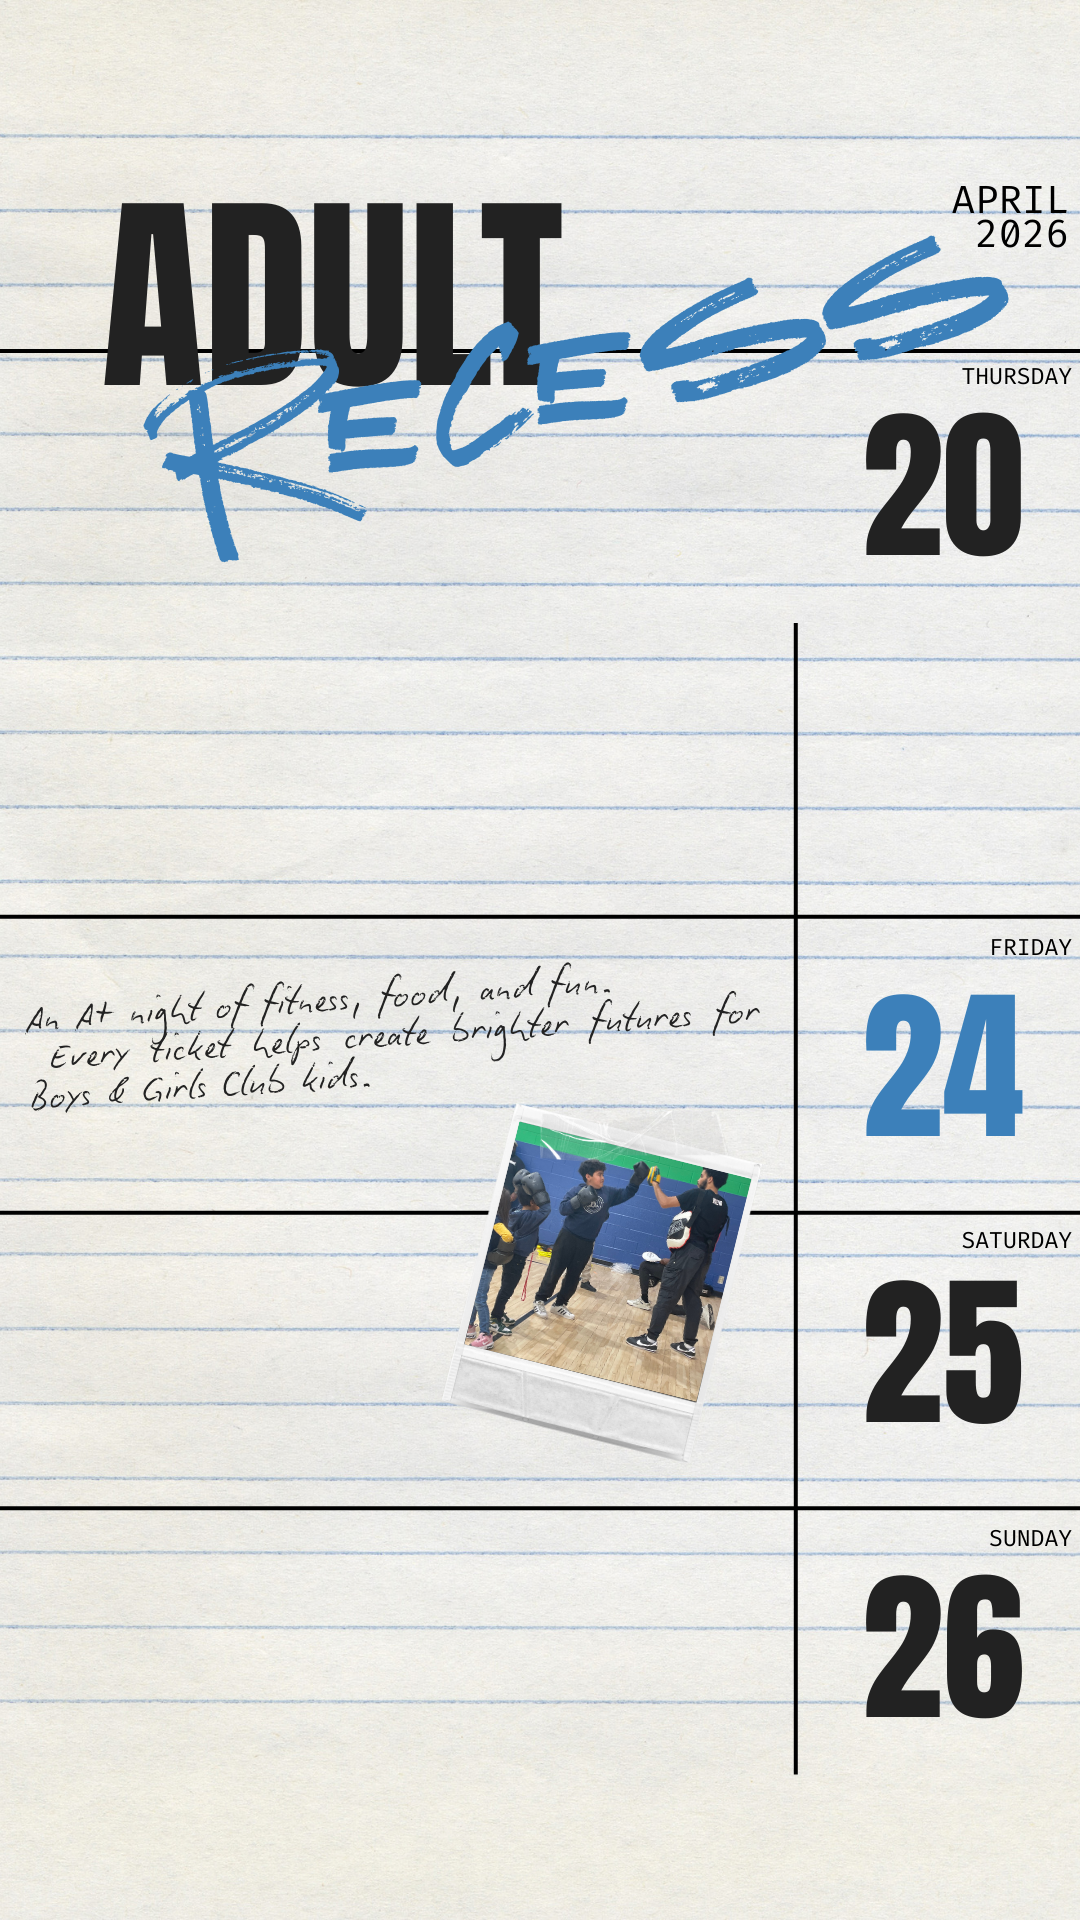 ADULT
RECESS
APRIL
2026
THURSDAY
20
FRIDAY
24
An At night of fitness, food, and fun.
Every ticket helps create brighter futures for
Boys & Girls Club kids.
SATURDAY
25
SUNDAY
26